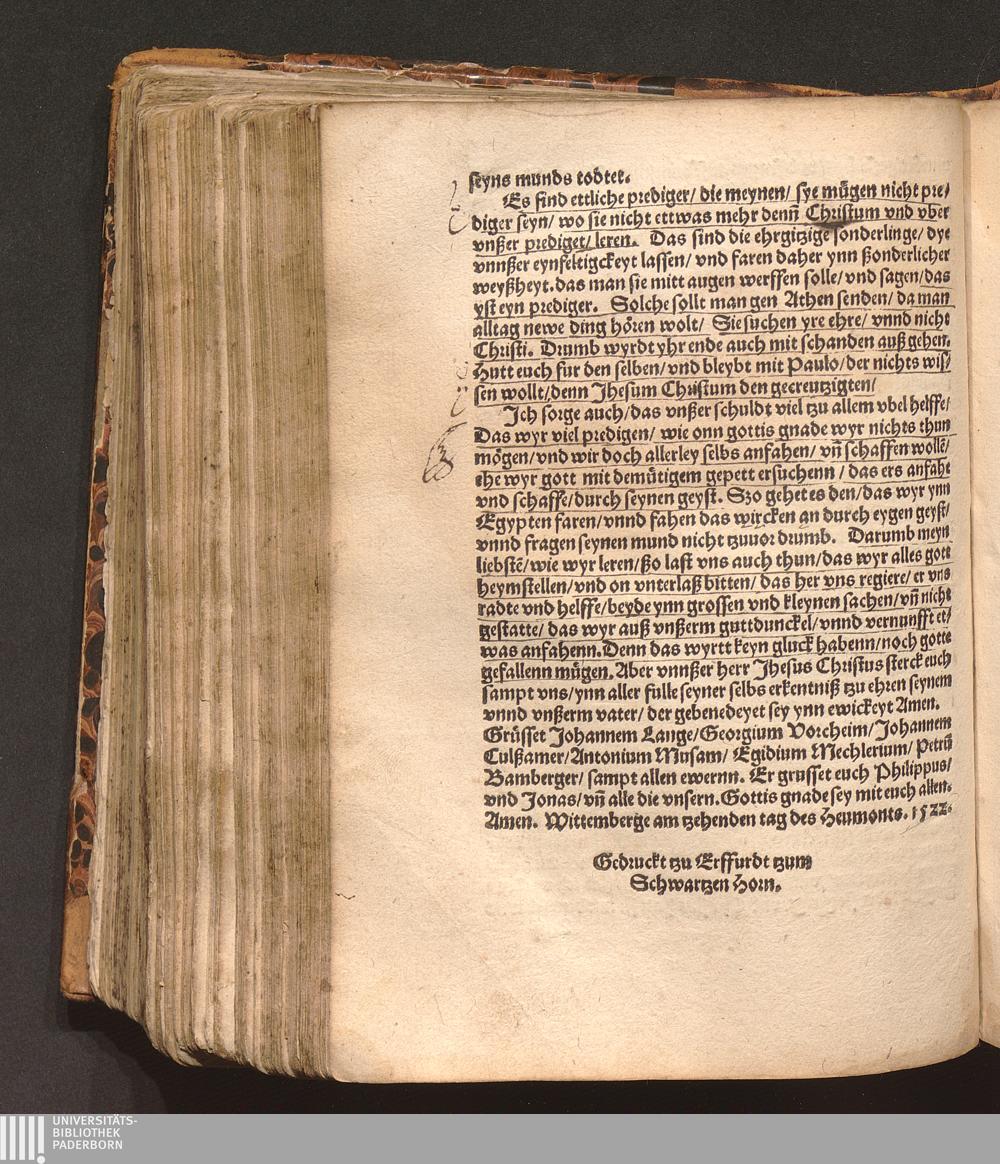 seyns munds todtet.
Es sind ettliche prediger/ die meynen/ sye mügen nicht pre/
diger seyn/ wo sie nicht ettwas mehr denñ Christum vnd vber
vnßer prediget/ leren. Das sind die ehrgitzige sonderlinge/ dye
vnnßer eynfeltigckeyt lassen/ vnd faren daher ynn ßonderlicher
weyßheyt. das man sie mitt augen werffen solle/ vnd sagen/ das
yst eyn prediger. Solche sollt man gen Athen senden/ da man
alltag newe ding hören wolt/ Sie suchen yre ehre/ vnnd nicht
Christi. Drumb wyrdt yhr ende auch mit schanden auß gehen.
Hutt euch fur den selben/ vnd bleybt mit Paulo/ der nichts wis/
sen wollt/ denn Jhesum Christum den gecreutzigten/
Ich sorge auch/ das vnßer schuldt viel tzu allem vbel helffe/
Das wyr viel predigen/ wie onn gottis gnade wyr nichts thun
mögen/ vnd wir doch allerley selbs anfahen/ vñ schaffen wollē/
ehe wyr gott mit demütigem gepett ersuchenn/ das ers anfahe
vnd schaffe/ durch seynen geyst. Szo gehet es den/ das wyr ynn
Egypten faren/ vnnd fahen das wircken an durch eygen geyst/
vnnd fragen seynen mund nicht tzuuor drumb. Darumb meyn
liebstē/ wie wyr leren/ ßo last vns auch thun/ das wyr alles gott
heymstellen/ vnd on vnterlaß bitten/ das her vns regiere/ er vns
radte vnd helffe/ beyde ynn grossen vnd kleynen sachen/ vñ nicht
gestatte/ das wyr auß vnßerm guttdunckel/ vnnd vernunfft et/
was anfahenn. Denn das wyrtt keyn gluck habenn/ noch gotte
gefallenn mügen. Aber vnnßer herr Jhesus Christus sterck euch
sampt vns/ ynn aller fulle seyner selbs erkentniß tzu ehren seynem
vnnd vnßerm vater/ der gebenedeyet sey ynn ewickeyt Amen.
Grüsset Johannem Lange/ Georgium Vorcheim/ Johannem
Culßamer/ Antonium Musam/ Egidium Mechlerium/ Petrū
Bamberger/ sampt allen ewernn. Er grusset euch Philippus/
vnd Jonas/ vñ alle die vnsern. Gottis gnade sey mit euch allen.
Amen. Wittemberge am tzehenden tag des Heumonts. 1522.
Gedruckt tzu Erffurdt tzum
Schwartzen Horn.
UNIVERSITÄTS-
BIBLIOTHEK
PADERBORN